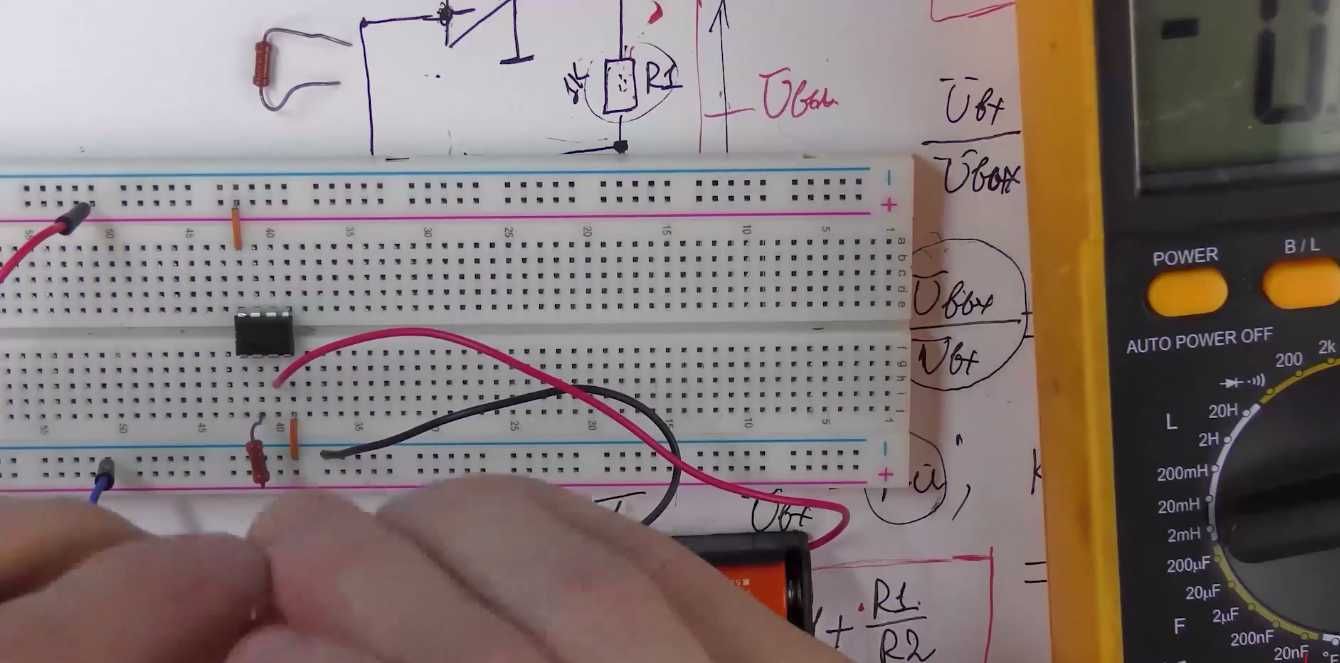 R1
Uвых
Uвх
Uвых
-
+
50
45
40
35
30
25
20
15
10
5
1
a
b
c
d
e
Uвых
Uвх
f
g
h
i
j
55
50
45
40
35
25
20
15
10
5
1
-
+
Uвх
+ R1
R2
=
POWER
B / L
AUTO POWER OFF
200
2k
L
20H
2H
200mH
20mH
2mH
200µF
20µF
F
2µF
200nF
20nF